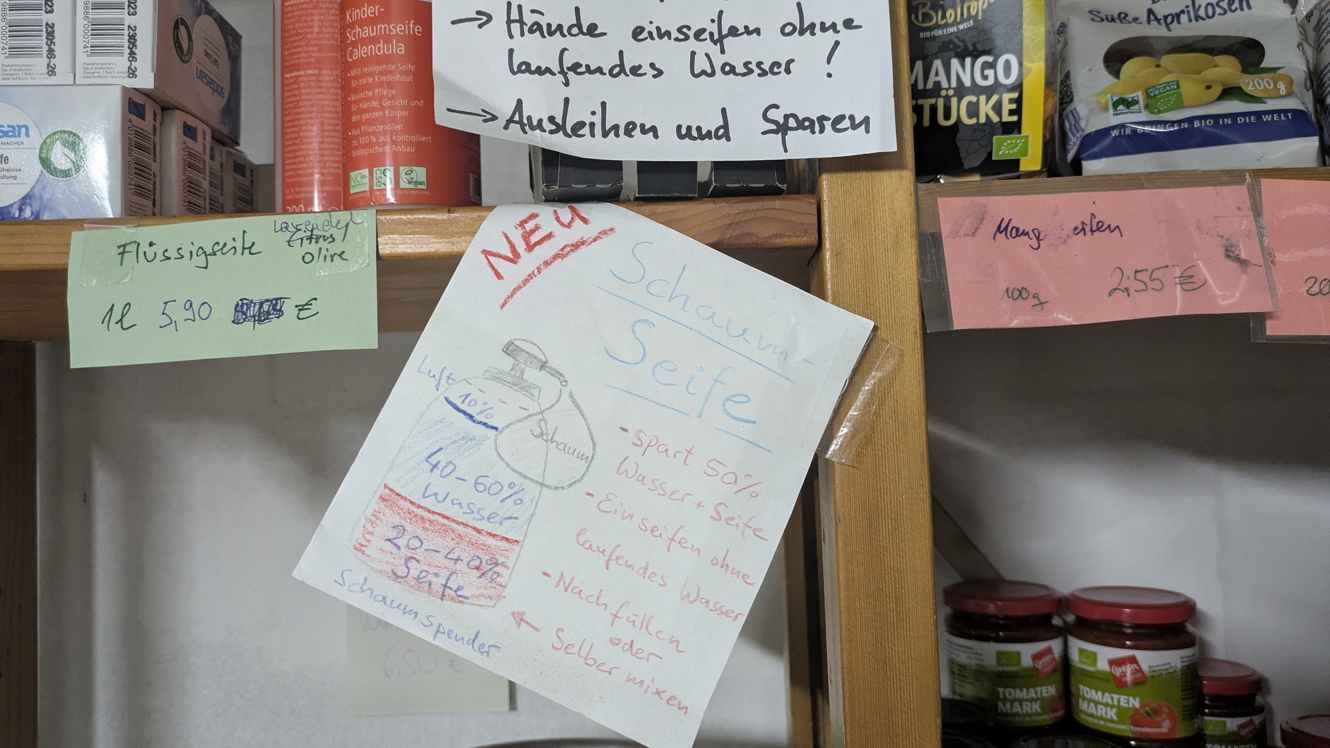 230546-26
230546-26
Kinder-
Schaumseife
Calendula
→ Hände einseifen ohne
laufendes Wasser !
→ Ausleihen und Sparen
MANGO
STÜCKE
Süße Aprikosen
VEGAN
200 g
WIR BRINGEN BIO IN DIE WELT
Flüssigseife
Lavendel
Citrus/
Olive
1l 5,90 €
NEU
Schaum-
Seife
Luft
10%
Schaum
40-60%
Wasser
20-40%
Seife
Schaumspender
- spart 50%
Wasser + Seife
- Einseifen ohne
laufendes Wasser
- Nachfüllen
oder
Selber mixen
100g 2,55 €
20
TOMATEN
MARK
TOMATEN
MARK